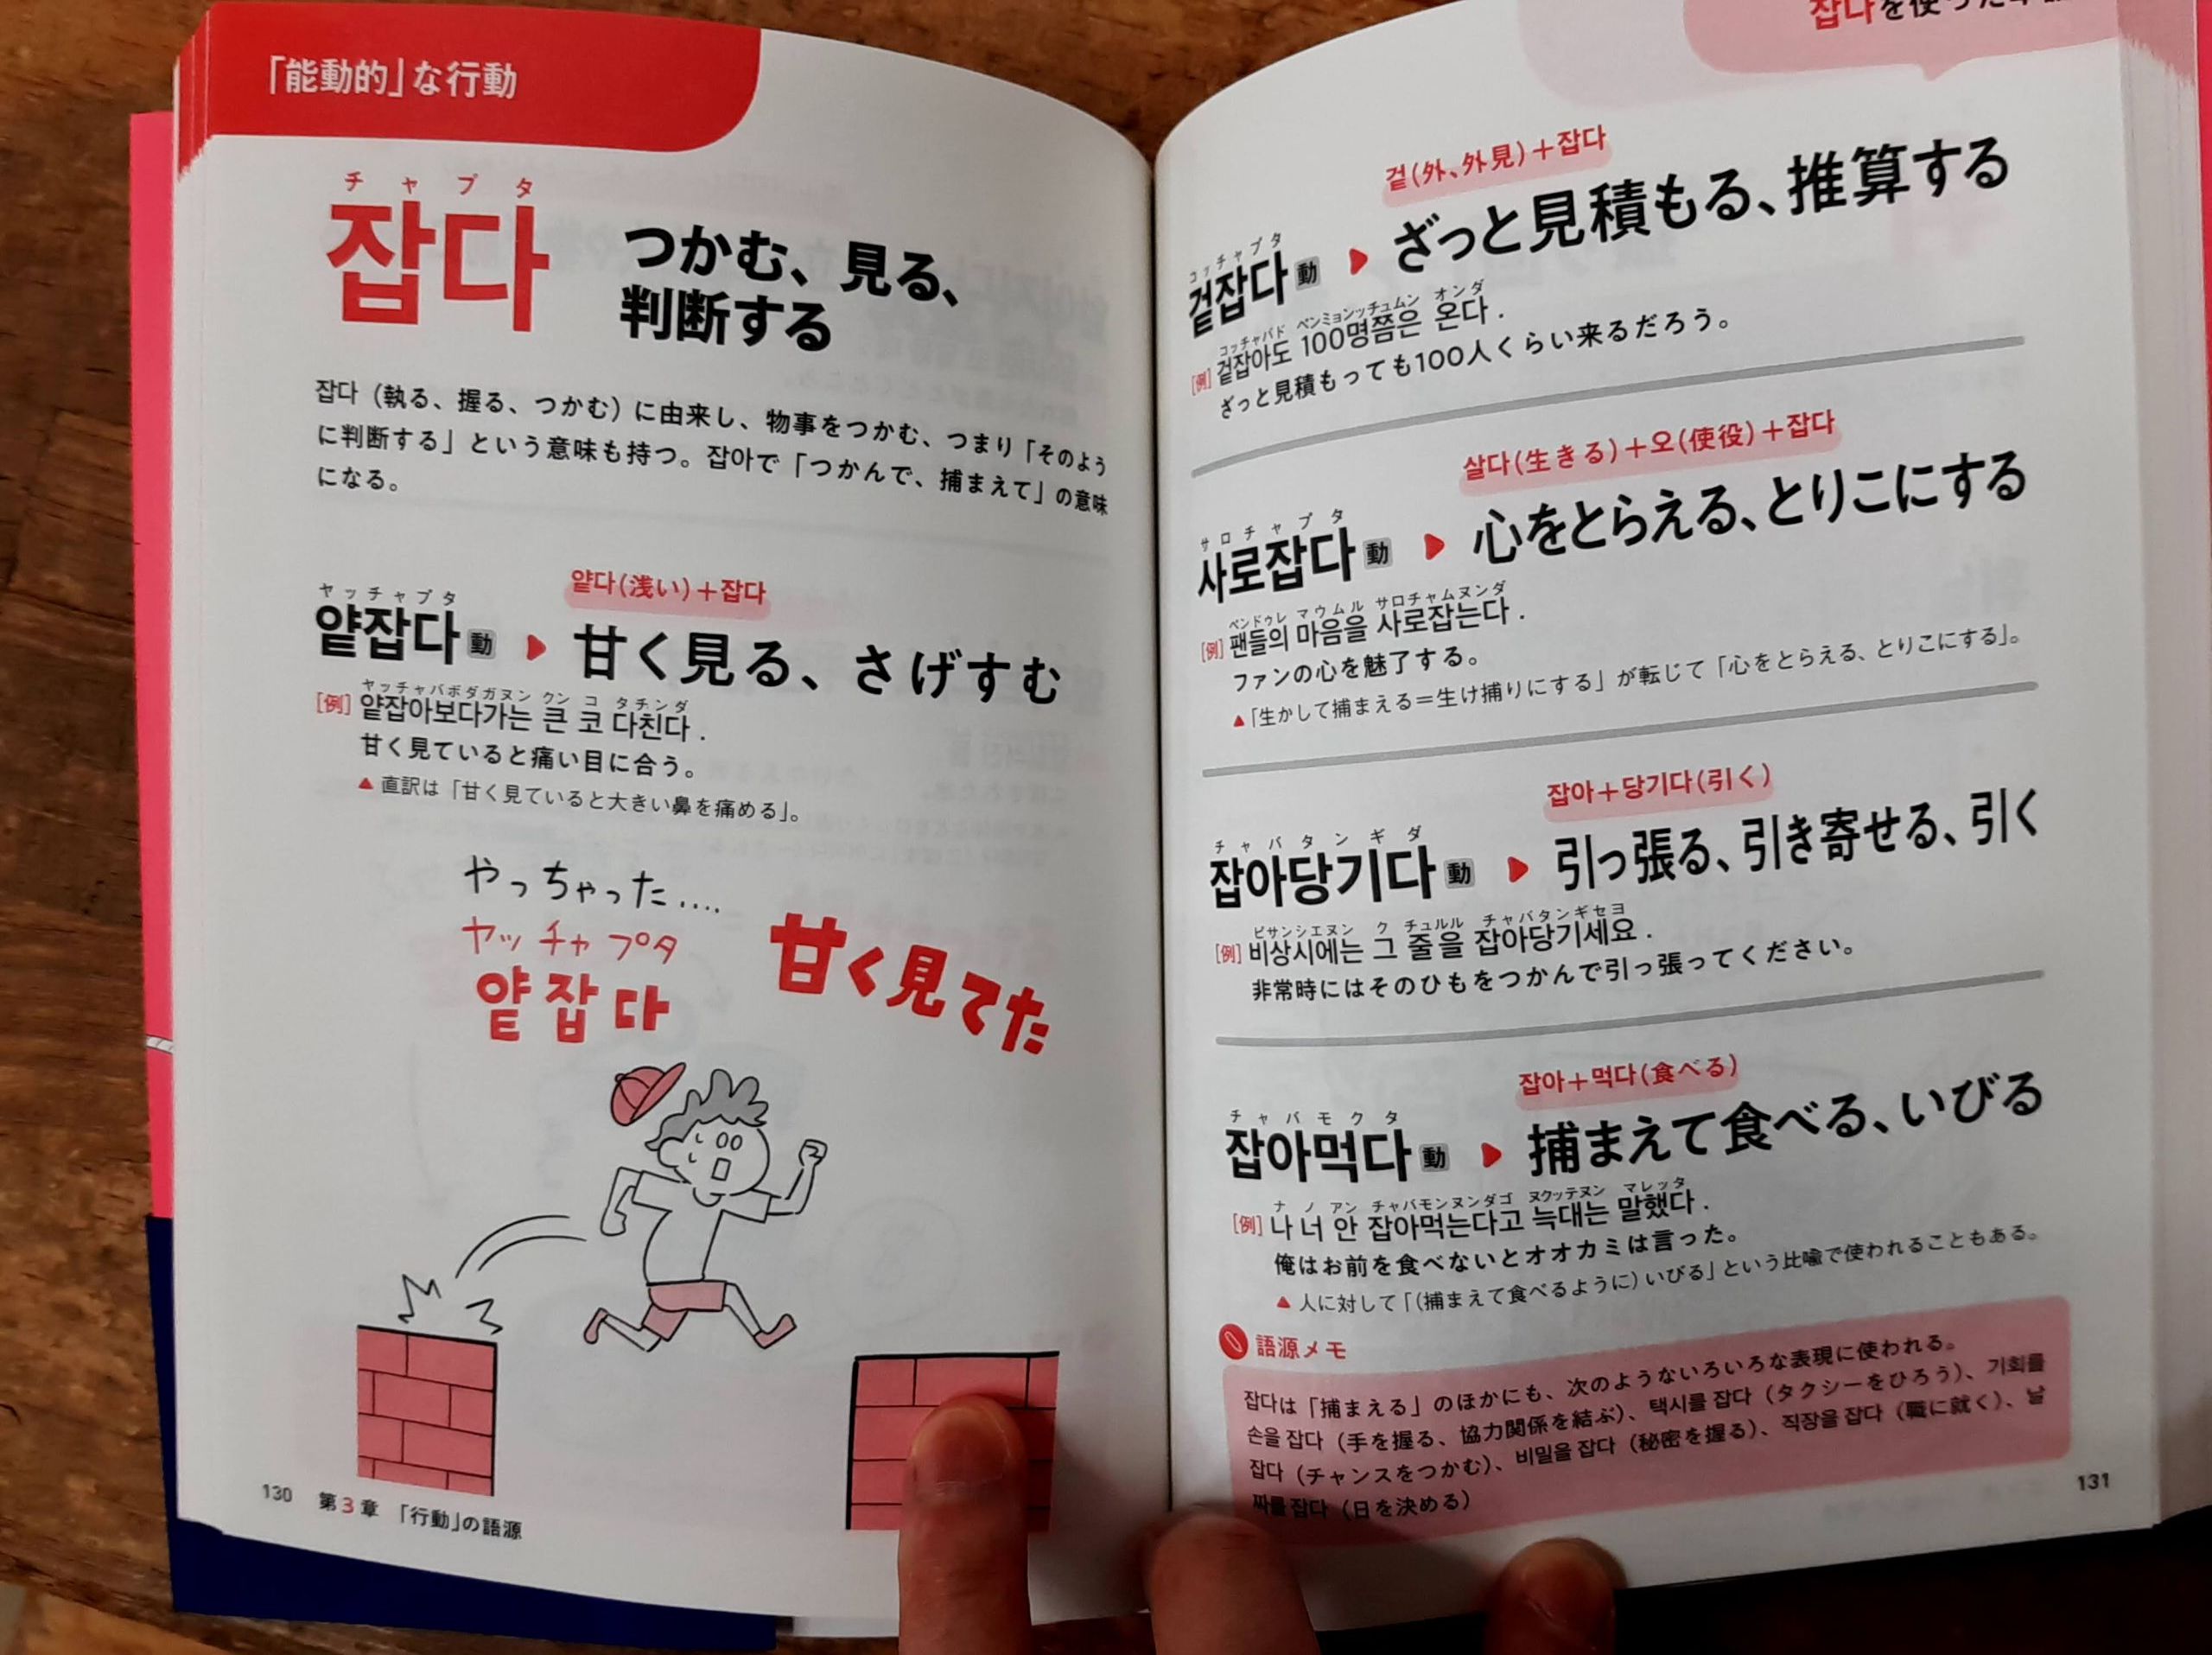 「能動的」な行動
チャプタ
잡다
つかむ、見る、
判断する
잡다（執る、握る、つかむ）に由来し、物事をつかむ、つまり「そのよう
に判断する」という意味も持つ。잡아で「つかんで、捕まえて」の意味
になる。
얕다(浅い)＋잡다
ヤッチャプタ
얕잡다 動 ▶ 甘く見る、さげすむ
ヤッチャバボダガヌン クン コ タチンダ
[例] 얕잡아보다가는 큰 코 다친다.
甘く見ていると痛い目に合う。
▲ 直訳は「甘く見ていると大きい鼻を痛める」。
やっちゃった....
ヤッチャプタ
얕잡다
甘く見てた
130 第3章 「行動」の語源
잡다を使った
겉(外、外見)＋잡다
コッチャプタ
겉잡다 動 ▶ ざっと見積もる、推算する
コッチャバド ペンミョンッチュムン オンダ
[例] 겉잡아도 100명쯤은 온다.
ざっと見積もっても100人くらい来るだろう。
살다(生きる)＋오(使役)＋잡다
サロチャプタ
사로잡다 動 ▶ 心をとらえる、とりこにする
ペンドゥレ マウムル サロチャムヌンダ
[例] 팬들의 마음을 사로잡는다.
ファンの心を魅了する。
▲「生かして捕まえる＝生け捕りにする」が転じて「心をとらえる、とりこにする」。
잡아＋당기다(引く)
チャバタンギダ
잡아당기다 動 ▶ 引っ張る、引き寄せる、引く
ピサンシエヌン ク チュルル チャバタンギセヨ
[例] 비상시에는 그 줄을 잡아당기세요.
非常時にはそのひもをつかんで引っ張ってください。
잡아＋먹다(食べる)
チャバモクタ
잡아먹다 動 ▶ 捕まえて食べる、いびる
ナ ノ アン チャバモンヌンダゴ ヌクッテヌン マレッタ
[例] 나 너 안 잡아먹는다고 늑대는 말했다.
俺はお前を食べないとオオカミは言った。
▲ 人に対して「(捕まえて食べるように)いびる」という比喩で使われることもある。
語源メモ
잡다は「捕まえる」のほかにも、次のようないろいろな表現に使われる。
손을 잡다（手を握る、協力関係を結ぶ）、택시를 잡다（タクシーをひろう）、기회를
잡다（チャンスをつかむ）、비밀을 잡다（秘密を握る）、직장을 잡다（職に就く）、날
짜를 잡다（日を決める）
131